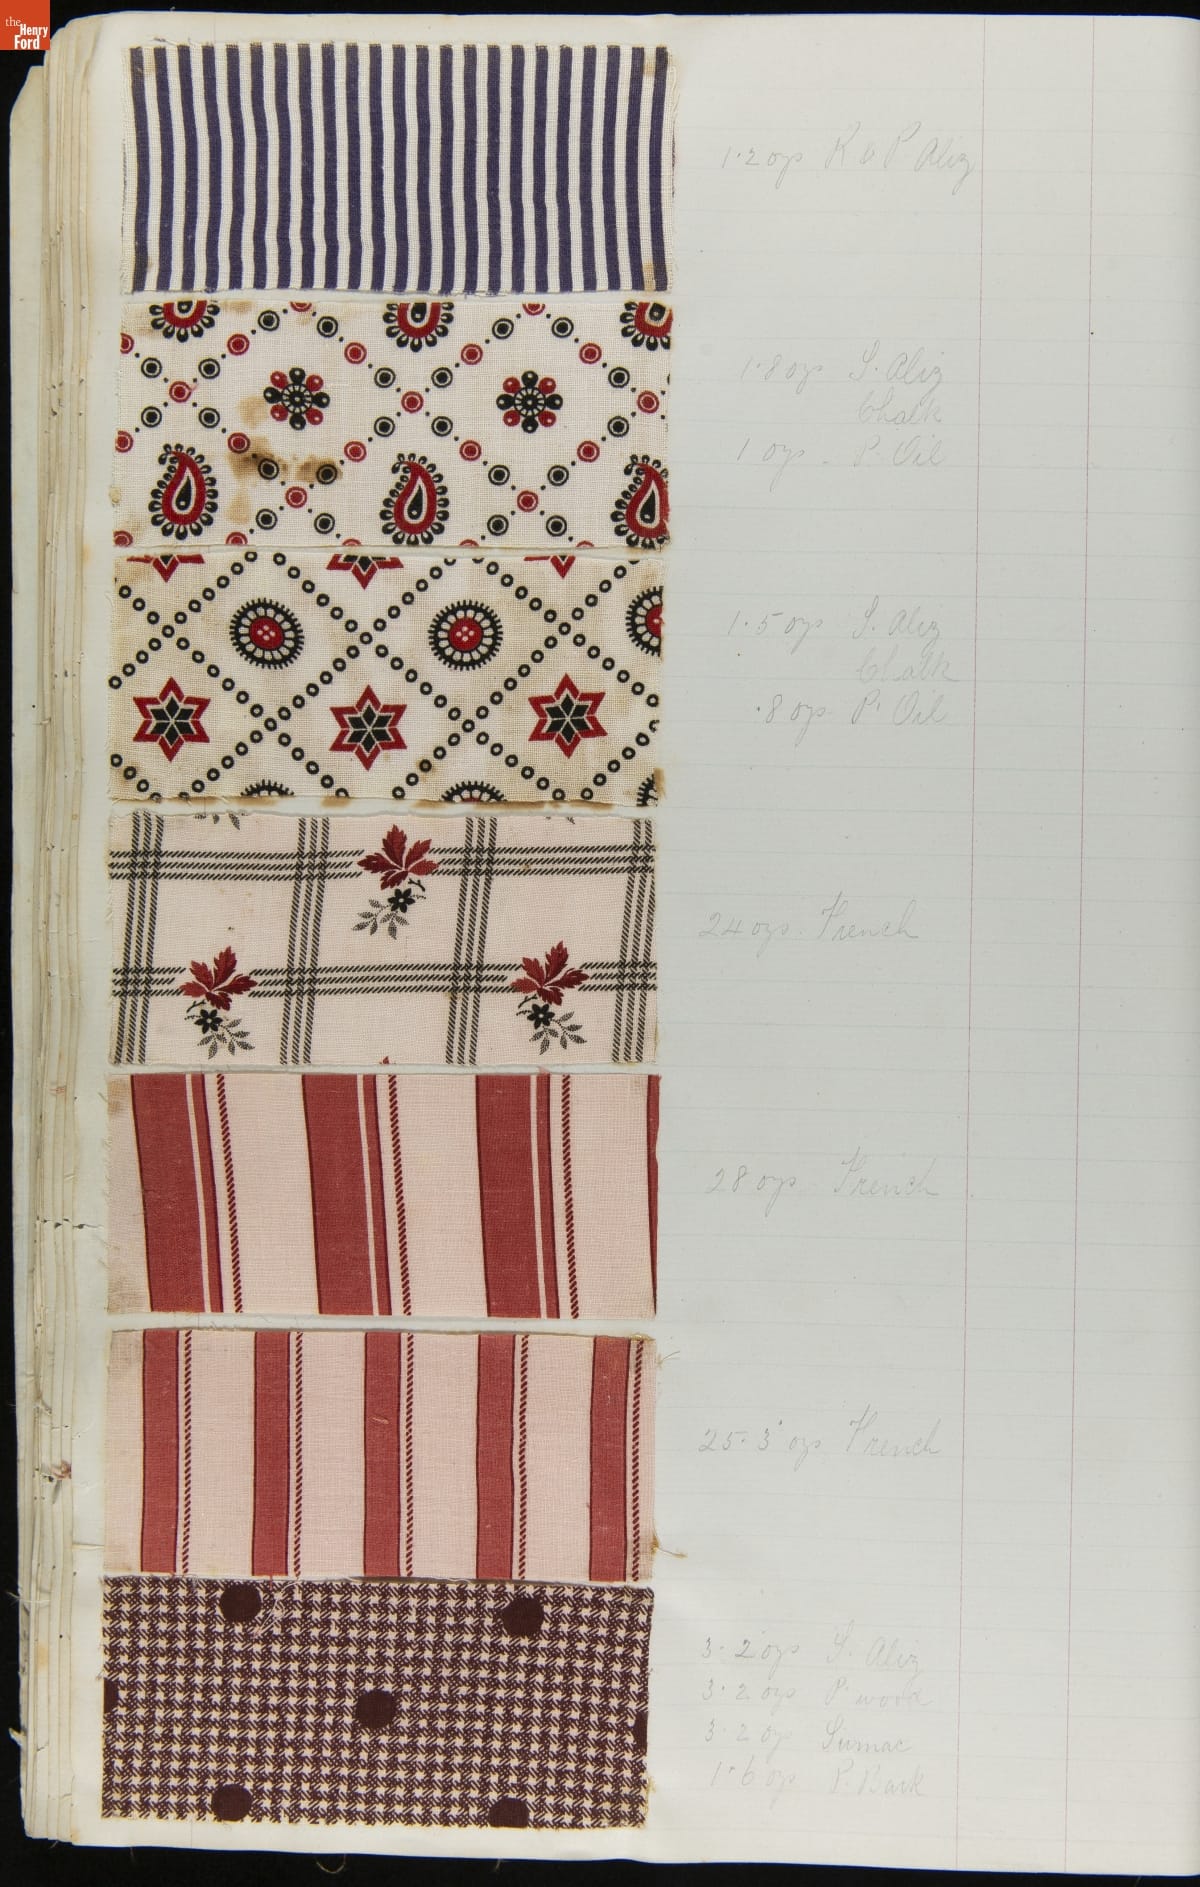 the
Henry
Ford
1·2 ozs R & P Aliz
1·8 ozs S. Aliz
Chalk
1 ozs. P. Oil
1·5 ozs S. Aliz
Chalk
·8 ozs P. Oil
24 ozs. French
28 ozs French
25·3 ozs French
3·2 ozs S. Aliz
3·2 ozs P. wood
3·2 oz Sumac
1·6 ozs P. Bark